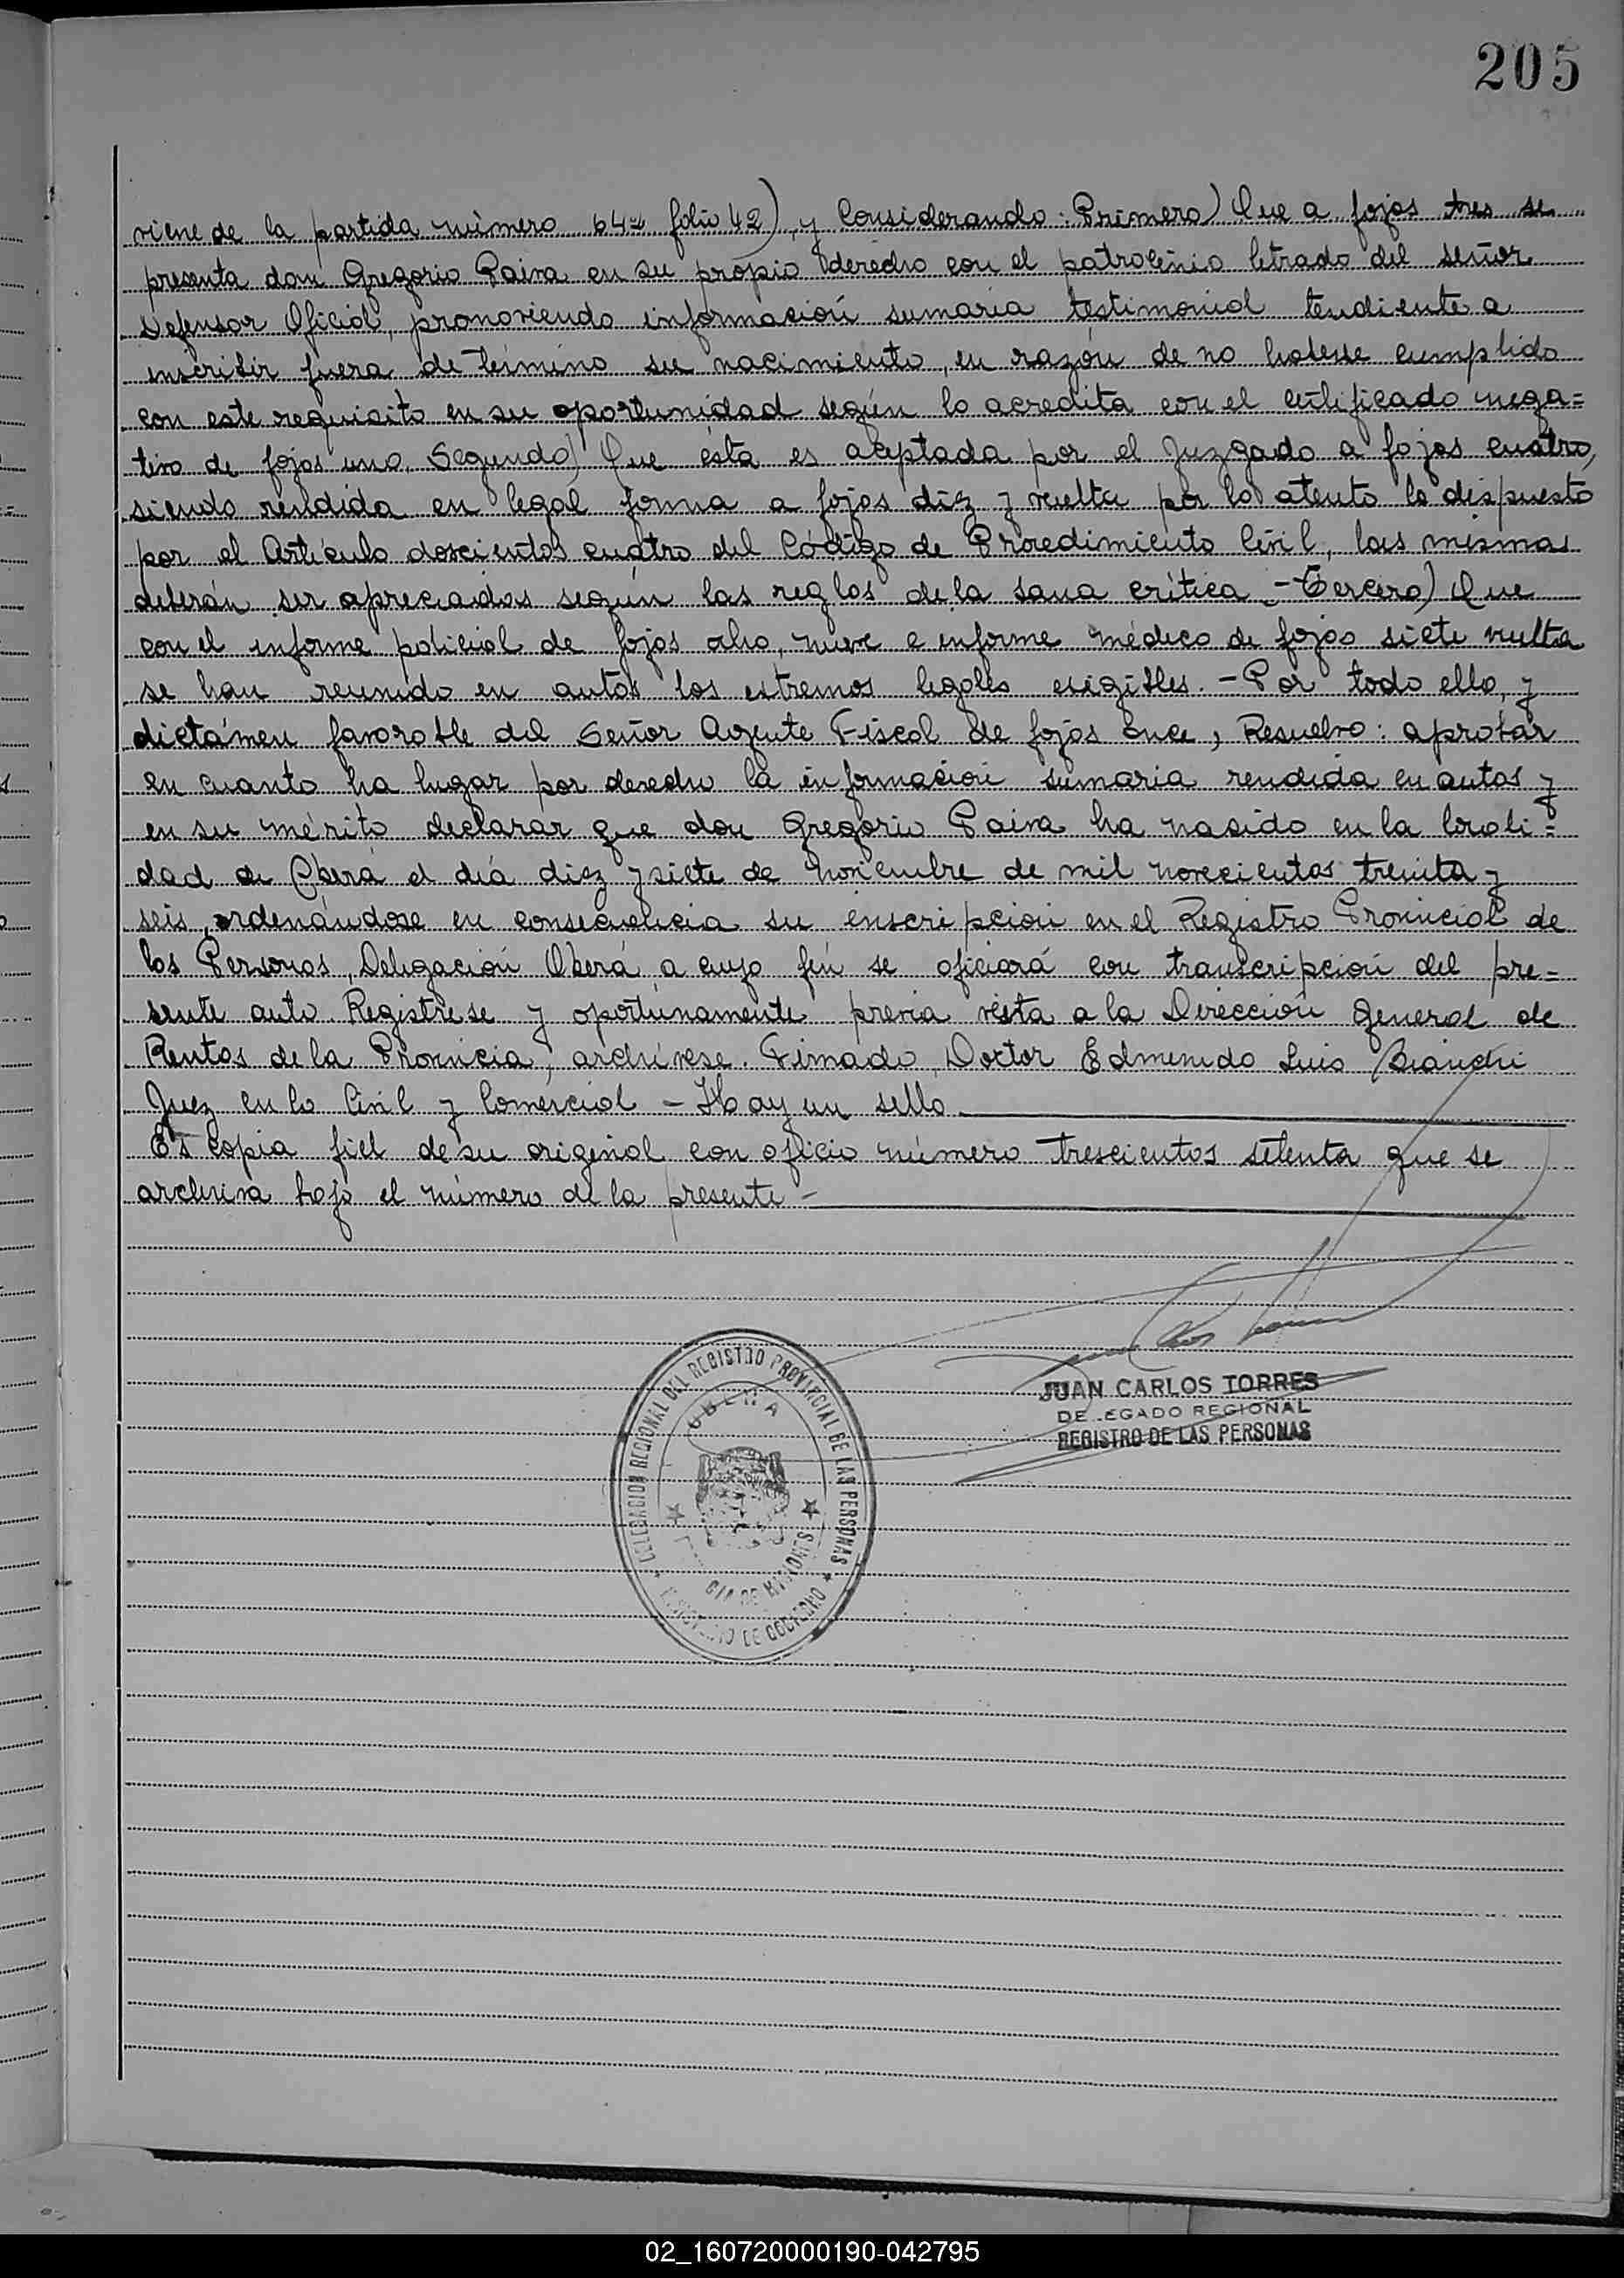 205
viene de la partida número 64= folio 42), y Considerando: Primero) Que a fojas tres se
presenta don Gregorio Paiva en su propio derecho con el patrocinio letrado del señor
Defensor Oficial, promoviendo información sumaria testimonial tendiente a
inscribir fuera de término su nacimiento, en razón de no haberse cumplido
con este requisito en su oportunidad según lo acredita con el certificado nega=
tivo de fojas uno. Segundo) Que ésta es aceptada por el Juzgado a fojas cuatro,
siendo rendida en legal forma a fojas diez y vuelta por lo atento lo dispuesto
por el Artículo doscientos cuatro del Código de Procedimiento Civil, las mismas
deberán ser apreciadas según las reglas de la sana crítica.- Tercero) Que
con el informe policial de fojas ocho, nueve e informe médico de fojas siete vuelta
se han reunido en autos los extremos legales exigibles.- Por todo ello, y
dictámen favorable del Señor Agente Fiscal de fojas once, Resuelvo: aprobar
en cuanto ha lugar por derecho la información sumaria rendida en autos y
en su mérito declarar que don Gregorio Paiva ha nacido en la locali=
dad de Oberá el día diez y siete de noviembre de mil novecientos treinta y
seis, ordenándose en consecuencia su inscripción en el Registro Provincial de
las Personas, Delegación Oberá, a cuyo fín se oficiará con transcripción del pre=
sente auto. Registrese y oportúnamente previa vista a la Dirección General de
Rentas de la Provincia, archívese. Fimado, Doctor Edmundo Luis Bianchi
Juez en lo Civil y Comercial - Hay un sello
Es copia fiel de su original con oficio número trescientos setenta que se
archiva bajo el número de la presente -
JUAN CARLOS TORRES
DELEGADO REGIONAL
REGISTRO DE LAS PERSONAS
DELEGACION REGIONAL DEL REGISTRO PROVINCIAL DE LAS PERSONAS
OBERA
CIA DE MISIONES
MINISTERIO DE GOBIERNO
02_160720000190-042795